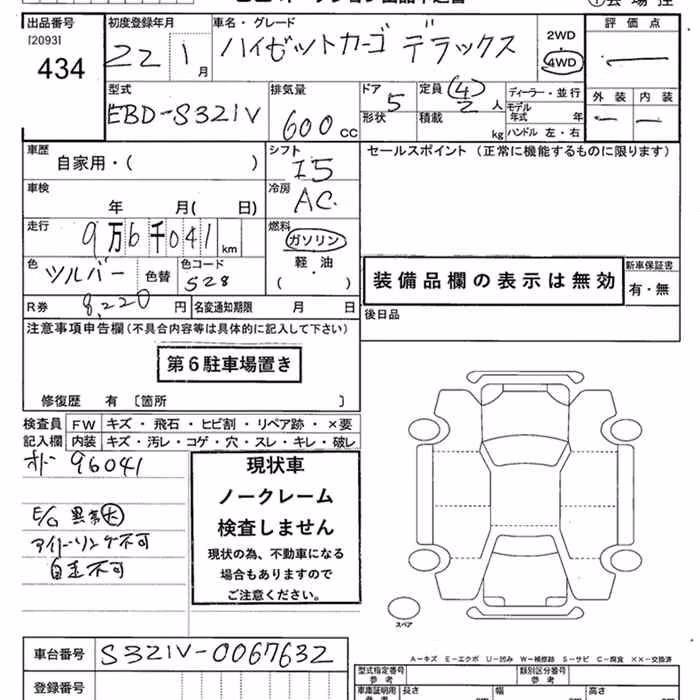 出品番号 初度登録年月 車名・グレード 2WD 評価点
[2093] 22 1月 ハイゼットカーゴ デラックス 4WD ー
434
型式 排気量 ドア 定員 (4) ディーラー・並行 外装 内装
EBD-S321V 600cc 5 2人 モデル年式 年 ー ー
形状 積載 kg ハンドル 左・右
車歴 シフト セールスポイント (正常に機能するものに限ります)
自家用・( ) I5
車検 冷房
年 月( 日) AC
走行 燃料
9万6千041km ガソリン
色 色替 色コード 軽・油
ツルバー S28 ( )
装備品欄の表示は無効 新車保証書
有・無
R券 8,220円 名変通知期限 月 日 後日品
注意事項申告欄(不具合内容等は具体的に記入して下さい)
第6駐車場置き
修復歴 有 〔箇所 〕
検査員 FW キズ・飛石・ヒビ割・リペア跡・×要
記入欄 内装 キズ・汚レ・コゲ・穴・スレ・キレ・破レ
オドー 96041
現状車
ノークレーム
検査しません
現状の為、不動車になる
場合もありますので
ご注意ください。
E/G 異音大
アイドリング不可
自走不可
スペア
車台番号 S321V-0067632
A-キズ E-エクボ U-凹み W-補修跡 S-サビ C-腐食 ××-交換済
登録番号
型式指定番号 参考 類別区分番号 参考
車庫証明用 参考 長さ cm 幅 cm 高さ cm